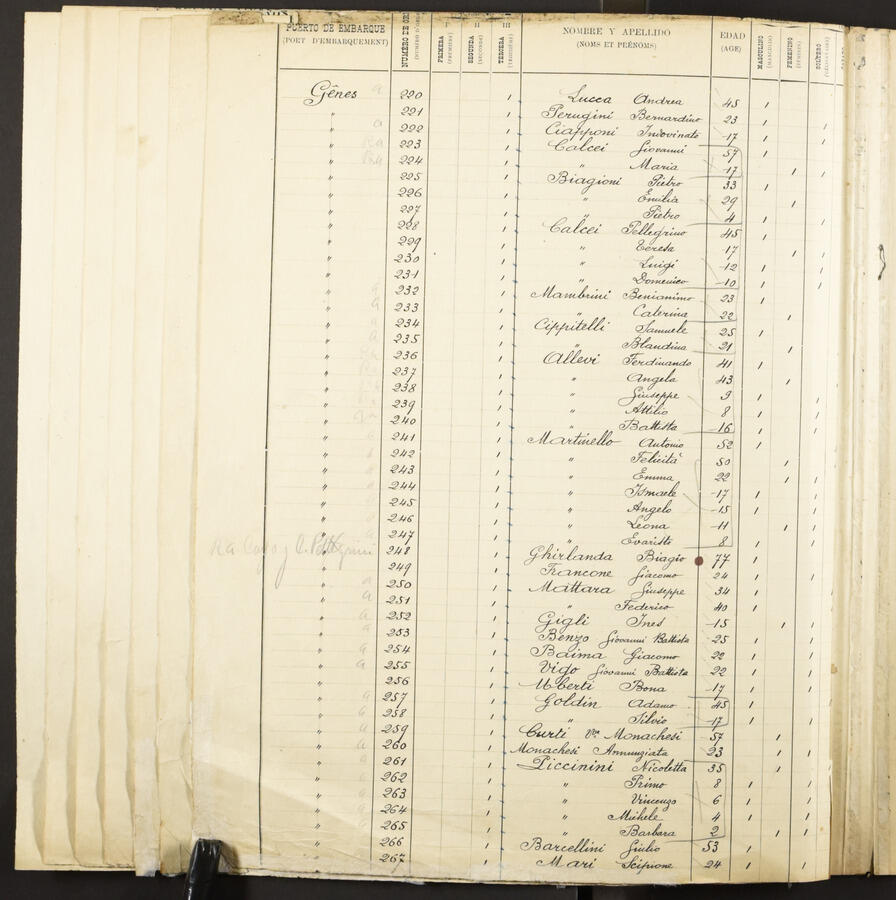 PUERTO DE EMBARQUE (PORT D'EMBARQUEMENT) NUMERO DE I PRIMERA (PREMIÈRE) II SEGUNDA (SECONDE) III TERCERA (TROISIÈME) NOMBRE Y APELLIDO (NOMS ET PRÉNOMS) EDAD (AGE) MASCULINO (MASCULIN) FEMENINO (FÉMININ) SOLTERO
Gênes a 220 Lucca Andrea 45
" 221 Perugini Bernardino 23
" a 222 Ciapponi Indovinato 17
" 223 Calcei Giovanni 57
" 224 " Maria 17
" 225 Biagioni Pietro 33
" 226 " Emilia 29
" 227 " Pietro 4
" 228 Calcei Pellegrino 45
" 229 " Teresa 17
" 230 " Luigi 12
" 231 " Domenico 10
" a 232 Mambrini Benianimo 23
" a 233 " Caterina 22
" a 234 Cippitelli Samuele 25
" a 235 " Blandina 21
" 236 Allevi Ferdinando 41
" 237 " Angela 43
" 238 " Giuseppe 9
" 239 " Attilio 8
" 240 " Battista 16
" 241 Martinello Antonio 52
" 242 " Felicità 50
" 243 " Emma 22
" 244 " Ismaele 17
" 245 " Angelo 15
" 246 " Leona 11
" 247 " Evaristo 8
" 248 Ghirlanda Biagio 77
" 249 Francone Giacomo 24
" a 250 Mattara Giuseppe 34
" a 251 " Federico 40
" a 252 Gigli Ines 15
" a 253 Benzo Giovanni Battista 25
" a 254 Baima Giacomo 22
" a 255 Vigo Giovanni Battista 22
" 256 Uberti Bona 17
" a 257 Goldin Adamo 45
" a 258 " Silvio 17
" a 259 Curti Monachesi 57
" a 260 Monachesi Annunziata 23
" a 261 Piccinini Nicoletta 35
" 262 " Primo 8
" 263 " Vincenzo 6
" 264 " Michele 4
" 265 " Barbara 2
" 266 Barcellini Giulio 53
" 267 Mari Scipione 24